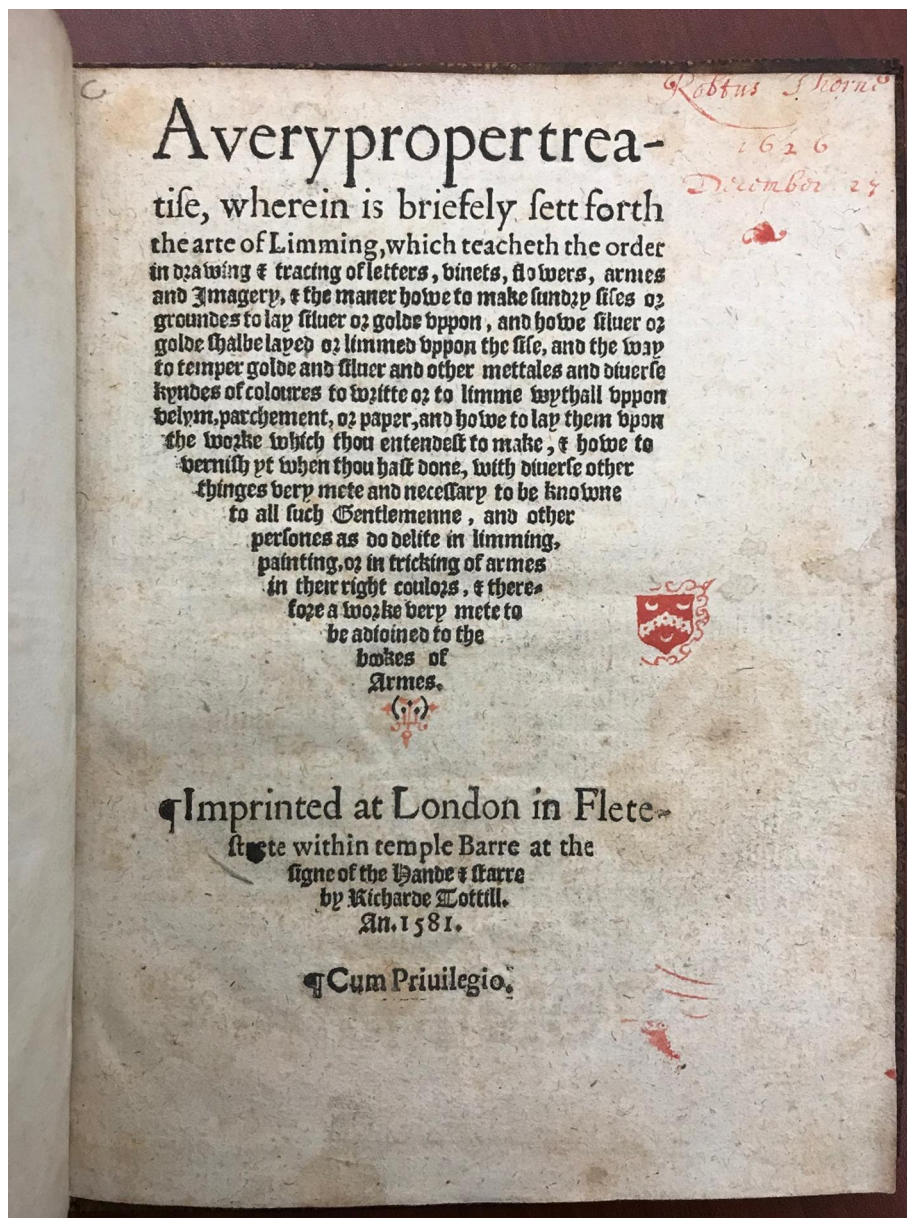 C
Robtus Thorne
1626
December 27
A very proper trea-
tiſe, wherein is briefely ſett forth
the arte of Limming, which teacheth the order
in drawing & tracing of letters, vinets, flowers, armes
and Imagery, & the maner howe to make ſundry ſiſes or
groundes to lay ſiluer or golde vppon, and howe ſiluer or
golde ſhalbe layed or limmed vppon the ſiſe, and the way
to temper golde and ſiluer and other mettales and diuerſe
kyndes of coloures to writte or to limme wythall vppon
velym, parchement, or paper, and howe to lay them vpon
the worke which thou entendeſt to make, & howe to
verniſh yt when thou haſt done, with diuerſe other
thinges very mete and neceſſary to be knowne
to all ſuch Gentlemenne, and other
perſones as do delite in limming,
painting, or in tricking of armes
in their right coulors, & there-
fore a worke very mete to
be adioined to the
bookes of
Armes.
¶Imprinted at London in Flete-
ſtrete within temple Barre at the
ſigne of the Hande & ſtarre
by Richarde Tottill.
An. 1581.
¶Cum Priuilegio.